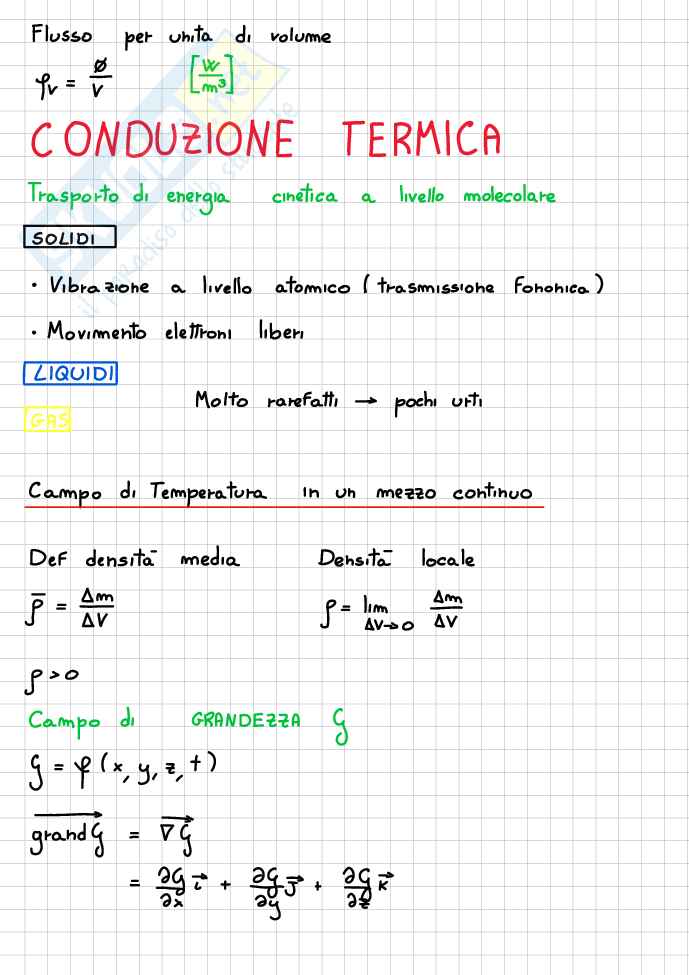 Flusso per unità di volume
φv = ø/V [W/m³]
CONDUZIONE TERMICA
Trasporto di energia cinetica a livello molecolare
SOLIDI
• Vibrazione a livello atomico (trasmissione Fononica)
• Movimento elettroni liberi
LIQUIDI
Molto rarefatti → pochi urti
GAS
Campo di Temperatura in un mezzo continuo
Def densità media Densità locale
ρ̅ = Δm/ΔV ρ = lim ΔV→0 Δm/ΔV
ρ > 0
Campo di GRANDEZZA G
G = φ (x, y, z, t)
grand G = ∇G
= ∂G/∂x i + ∂G/∂y J + ∂G/∂z K